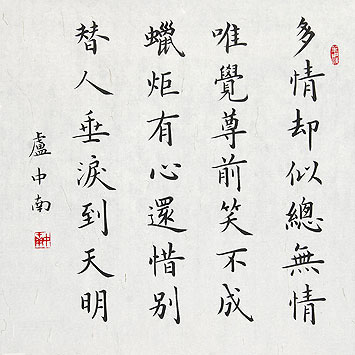 多情却似總無情
唯覺尊前笑不成
蠟炬有心還惜别
替人垂淚到天明
盧中南